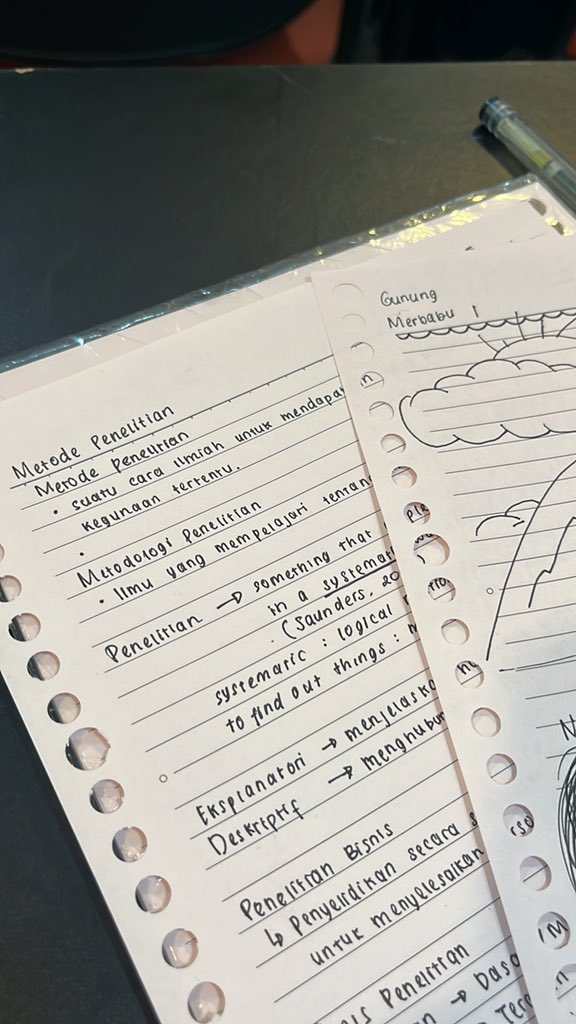 Metode Penelitian
Metode Penelitian
• suatu cara ilmiah untuk mendapat
kegunaan tertentu.
•
Metodologi Penelitian
• Ilmu yang mempelajari tentang
Penelitian → something that
in a systemat
(Saunders, 20
systematic : logical
to find out things :
Eksplanatori → menjelaska
Deskriptif → menghubun
Penelitian Bisnis
↳ Penyelidikan secara s
untuk menyelesaikan
Penelitian
→ Dasa
Tere
Gunung
Merbabu